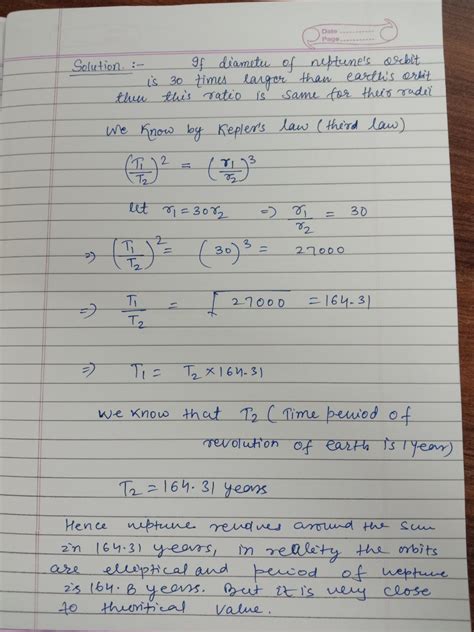 Date
Page
Solution :- If diameter of neptune's orbit
is 30 times larger than earth's orbit
then this ratio is same for their radii
We know by Kepler's law (third law)
(T₁/T₂)² = (r₁/r₂)³
let r₁ = 30r₂ => r₁/r₂ = 30
=> (T₁/T₂)² = (30)³ = 27000
=> T₁/T₂ = √27000 = 164.31
=> T₁ = T₂ × 164.31
We know that T₂ ( Time period of
revolution of earth is 1 year)
T₂ = 164.31 years
Hence neptune revolves around the sun
in 164.31 years, in reality the orbits
are elliptical and period of neptune
is 164.8 years. But it is very close
to theoritical value.